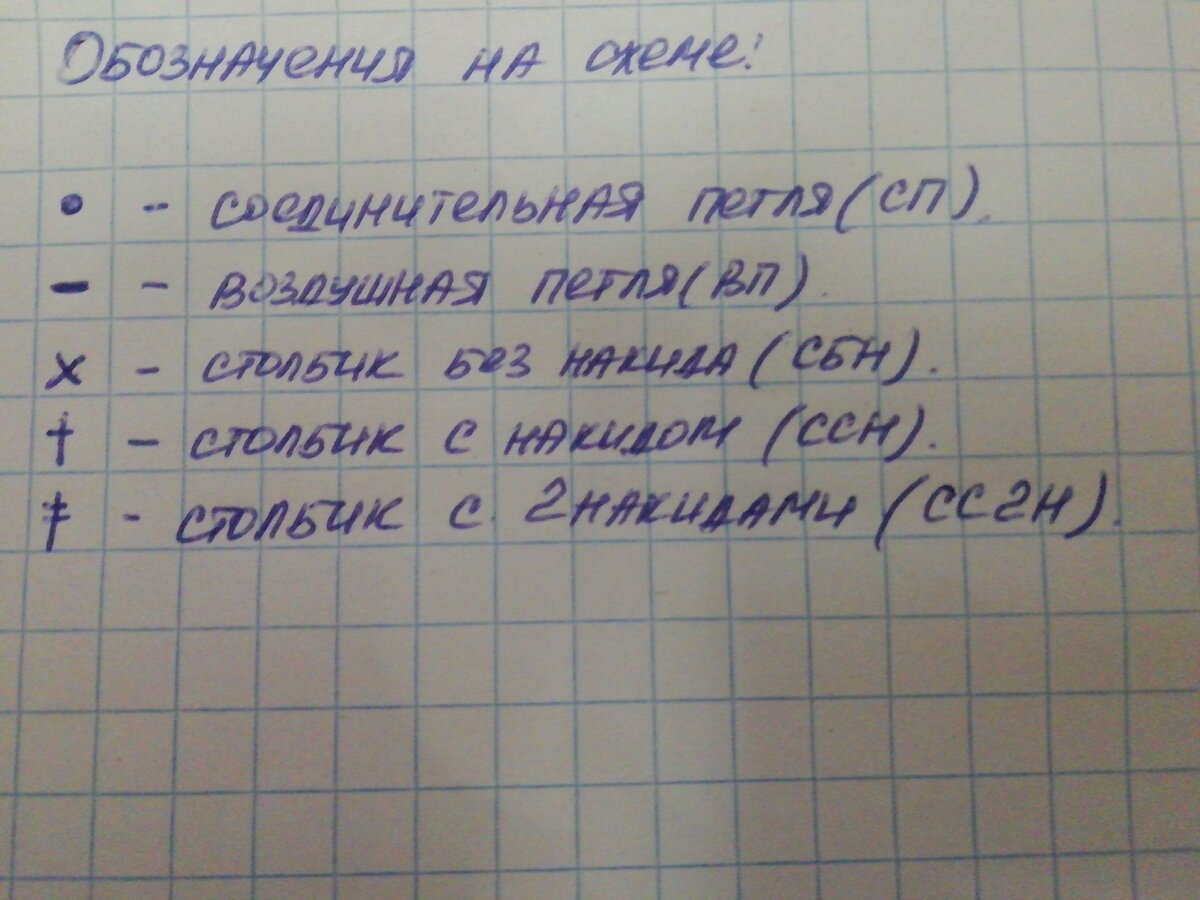 Обозначения на схеме:
• - соединительная петля (СП).
– - воздушная петля (ВП).
x - столбик без накида (СБН).
† - столбик с накидом (ССН).
‡ - столбик с 2 накидами (СС2Н).